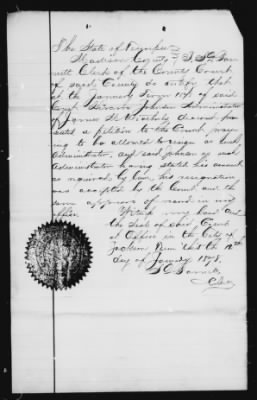 The State of Tennessee
Madison County
Clerk of the County Court
of said County do certify that
at the January Term 1878 of said
Court Johnson Administrator
of James deceased pre
sented a petition to the Court pray
ing to be allowed to resign as such
Administrator, and said Johnson as such
Administrator having settled his account
as required by law, his resignation
was accepted by the Court and the
same appears of record in my
office. Witness my hand and
the Seal of said Court
at Office in the City of
Jackson Tenn this the 12th
day of January 1878.
Clerk